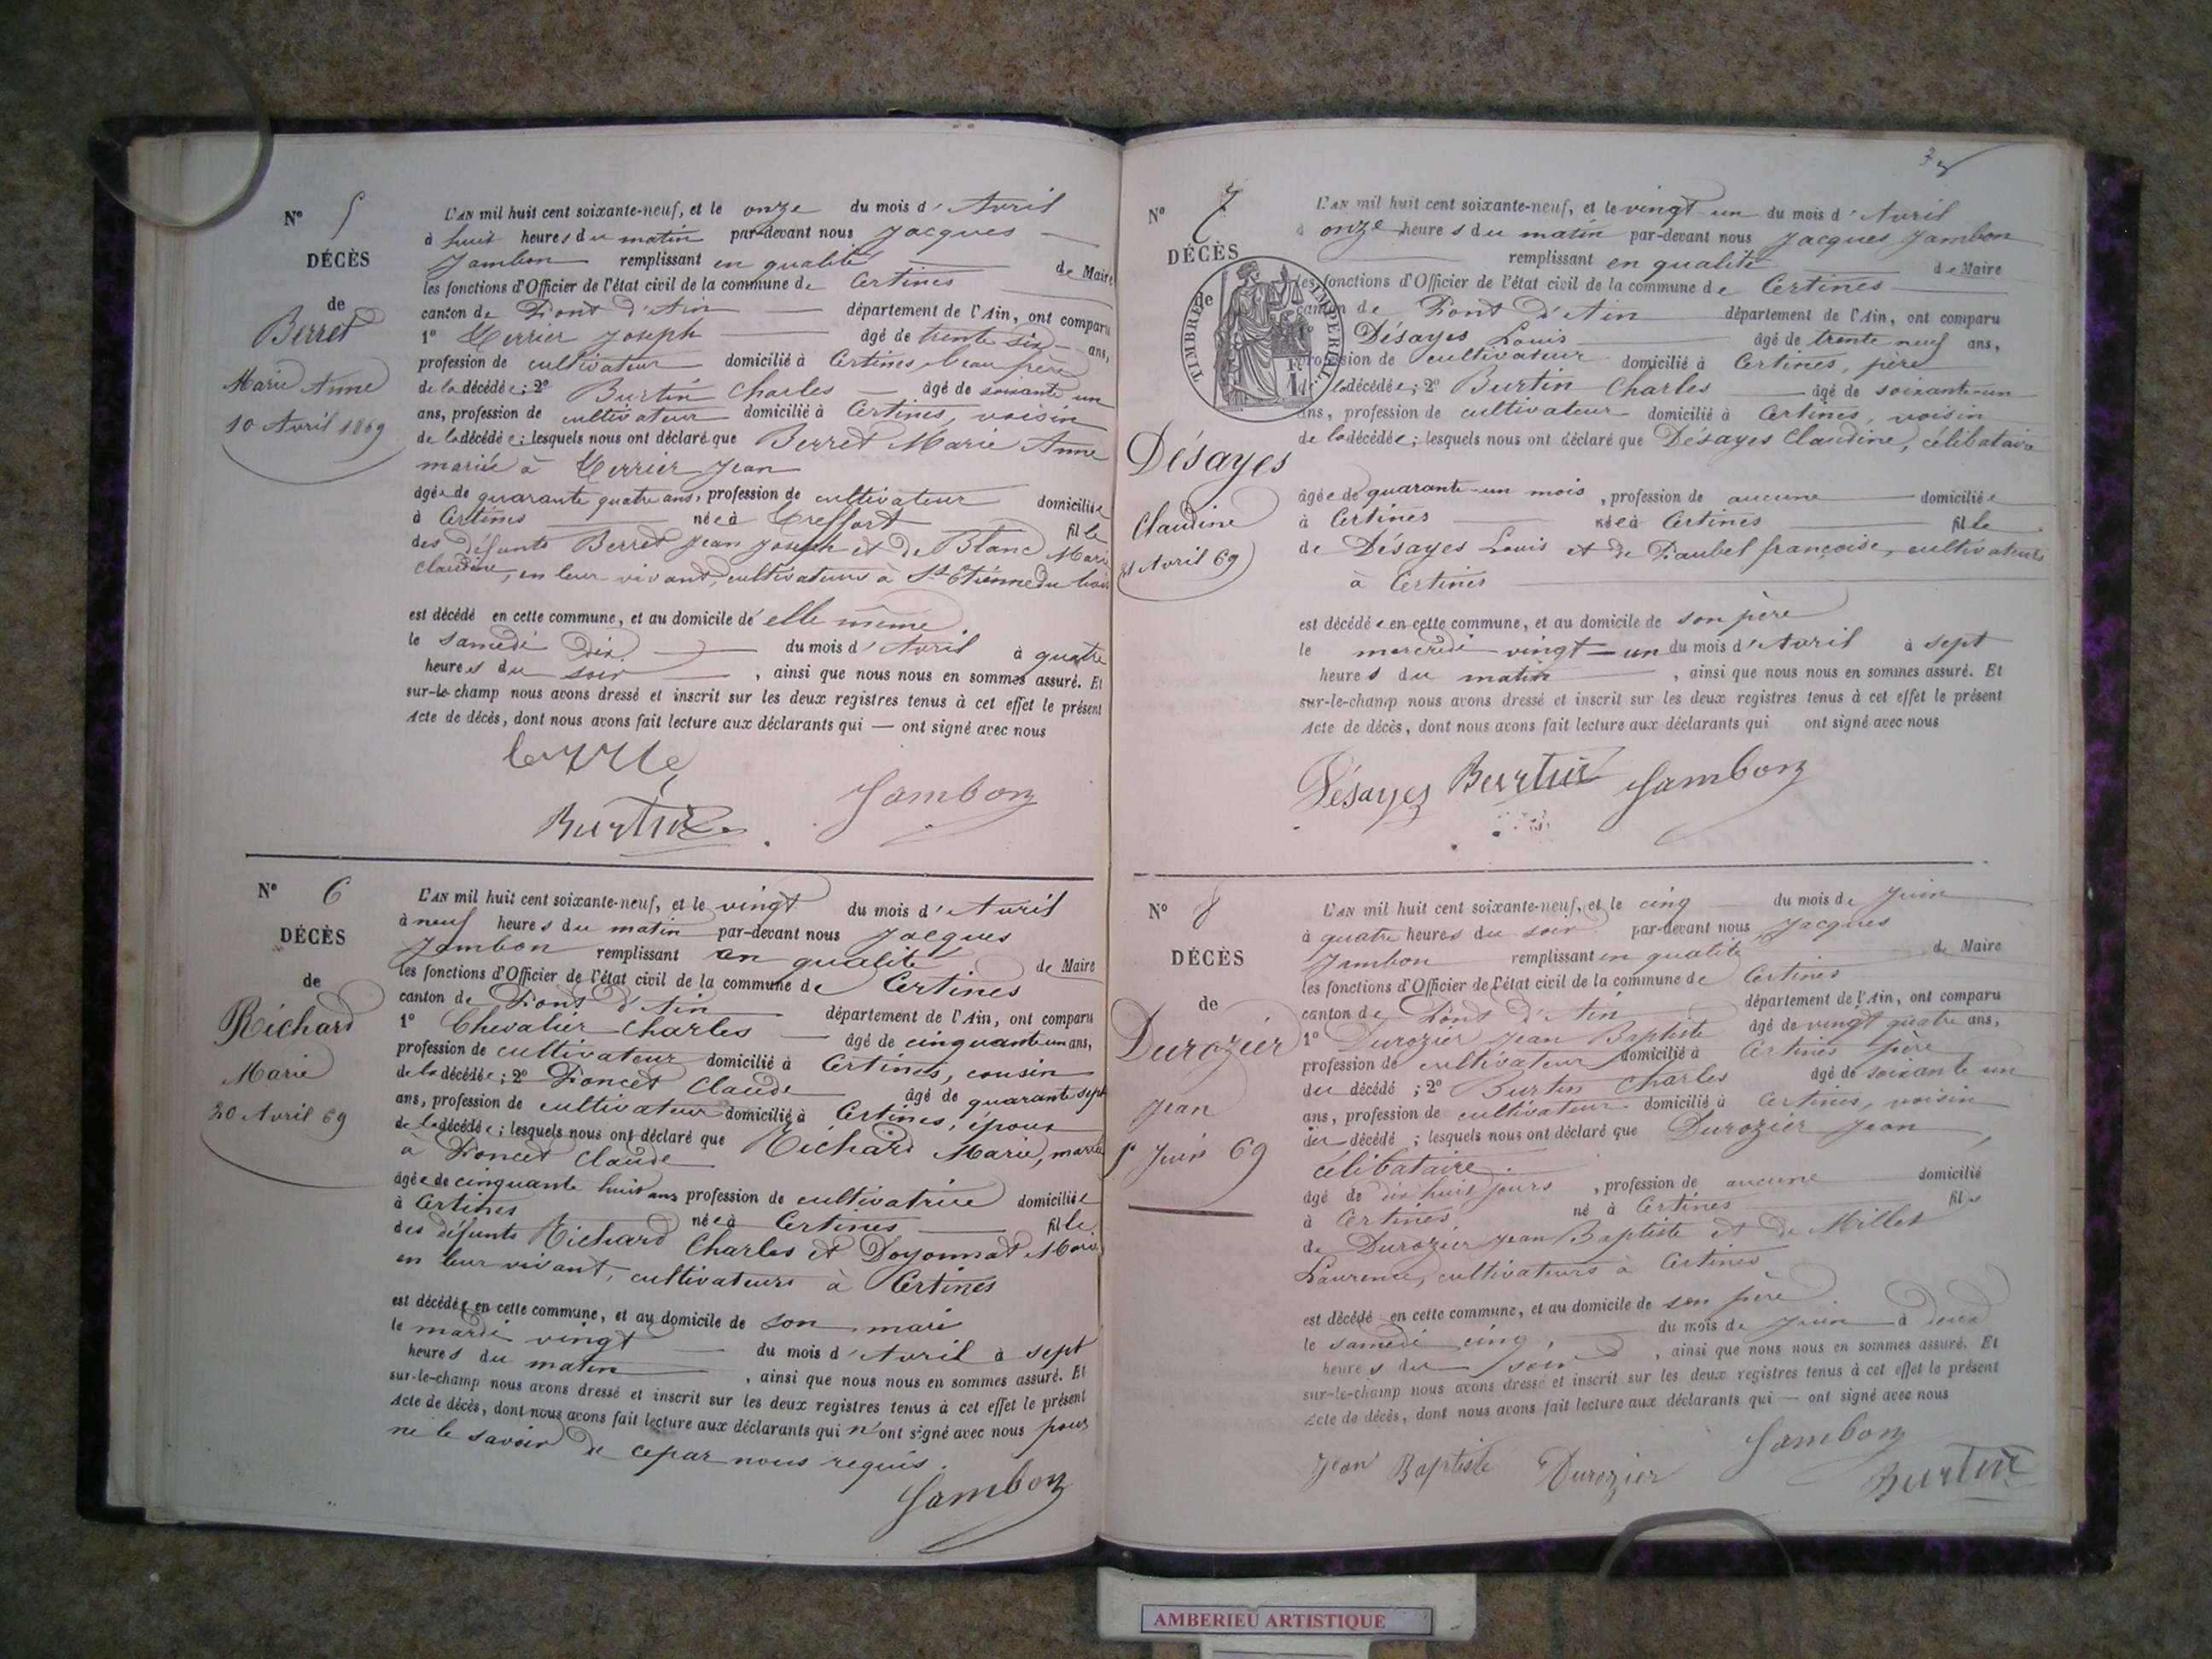 Nº 5
DÉCÈS
de
Berret
Marie Anne
10 Avril 1869
L'AN mil huit cent soixante-neuf, et le onze du mois d'Avril
à huit heures du matin par-devant nous Jacques
Jambon remplissant en qualité de Maire
les fonctions d'Officier de l'état civil de la commune de Certines
canton de Pont d'Ain département de l'Ain, ont comparu
1º Perrier Joseph âgé de trente six ans,
profession de cultivateur domicilié à Certines, beau frère
de la décédée; 2º Burtin Charles âgé de soixante un
ans, profession de cultivateur domicilié à Certines, voisin
de la décédée; lesquels nous ont déclaré que Berret Marie Anne
mariée à Perrier Jean
âgée de quarante quatre ans, profession de cultivateur domiciliée
à Certines née à Treffort fille
des défunts Berret Jean Joseph et de Blanc Marie
Claudine, en leur vivant, cultivateurs à St Etienne du bois
est décédé en cette commune, et au domicile d'elle même
le samedi dix du mois d'Avril à quatre
heures du soir, ainsi que nous nous en sommes assuré. Et
sur-le-champ nous avons dressé et inscrit sur les deux registres tenus à cet effet le présent
Acte de décès, dont nous avons fait lecture aux déclarants qui — ont signé avec nous
Jambon
Burtin
Nº 6
DÉCÈS
de
Richard
Marie
20 Avril 69
L'AN mil huit cent soixante-neuf, et le vingt du mois d'Avril
à neuf heures du matin par-devant nous Jacques
Jambon remplissant en qualité de Maire
les fonctions d'Officier de l'état civil de la commune de Certines
canton de Pont d'Ain département de l'Ain, ont comparu
1º Chevalier Charles âgé de cinquante un ans,
profession de cultivateur domicilié à Certines, cousin
de la décédée; 2º Poncet Claude âgé de quarante sept
ans, profession de cultivateur domicilié à Certines, époux
de la décédée; lesquels nous ont déclaré que Richard Marie, mariée
à Poncet Claude
âgée de cinquante huit ans profession de cultivatrice domiciliée
à Certines née à Certines fille
des défunts Richard Charles et Doyonnat Marie
en leur vivant, cultivateurs à Certines
est décédée en cette commune, et au domicile de son mari
le mardi vingt du mois d'Avril à sept
heures du matin, ainsi que nous nous en sommes assuré. Et
sur-le-champ nous avons dressé et inscrit sur les deux registres tenus à cet effet le présent
Acte de décès, dont nous avons fait lecture aux déclarants qui n'ont signé avec nous pour
ne le savoir de ce par nous requis.
Jambon
Nº 7
DÉCÈS
de
TIMBRE IMPERIAL
Désayes
Claudine
21 Avril 69
L'AN mil huit cent soixante-neuf, et le vingt-un du mois d'Avril
à onze heures du matin par-devant nous Jacques Jambon
remplissant en qualité de Maire
les fonctions d'Officier de l'état civil de la commune de Certines
canton de Pont d'Ain département de l'Ain, ont comparu
Désayes Louis âgé de trente neuf ans,
profession de cultivateur domicilié à Certines, père
de la décédée; 2º Burtin Charles âgé de soixante-un
ans, profession de cultivateur domicilié à Certines, voisin
de la décédée; lesquels nous ont déclaré que Désayes Claudine, célibataire
âgée de quarante-un mois, profession de aucune domiciliée
à Certines née à Certines fille
de Désayes Louis et de Paubel françoise, cultivateurs
à Certines
est décédée en cette commune, et au domicile de son père
le mercredi vingt-un du mois d'Avril à sept
heures du matin, ainsi que nous nous en sommes assuré. Et
sur-le-champ nous avons dressé et inscrit sur les deux registres tenus à cet effet le présent
Acte de décès, dont nous avons fait lecture aux déclarants qui ont signé avec nous
Désayes Burtin Jambon
Nº 8
DÉCÈS
de
Durozier
Jean
5 Juin 69
L'AN mil huit cent soixante-neuf, et le cinq du mois de Juin
à quatre heures du soir par-devant nous Jacques
Jambon remplissant en qualité de Maire
les fonctions d'Officier de l'état civil de la commune de Certines
canton de Pont d'Ain département de l'Ain, ont comparu
1º Durozier Jean Baptiste âgé de vingt quatre ans,
profession de cultivateur domicilié à Certines père
du décédé; 2º Burtin Charles âgé de soixante un
ans, profession de cultivateur domicilié à Certines, voisin
du décédé; lesquels nous ont déclaré que Durozier Jean,
célibataire
âgé de dix huit jours, profession de aucune domicilié
à Certines né à Certines fils
de Durozier Jean Baptiste et de Millet
Laurence, cultivateurs à Certines
est décédé en cette commune, et au domicile de son père
le samedi cinq, du mois de Juin à deux
heures du soir, ainsi que nous nous en sommes assuré. Et
sur-le-champ nous avons dressé et inscrit sur les deux registres tenus à cet effet le présent
Acte de décès, dont nous avons fait lecture aux déclarants qui — ont signé avec nous
Jean Baptiste Durozier Jambon
Burtin
AMBERIEU ARTISTIQUE